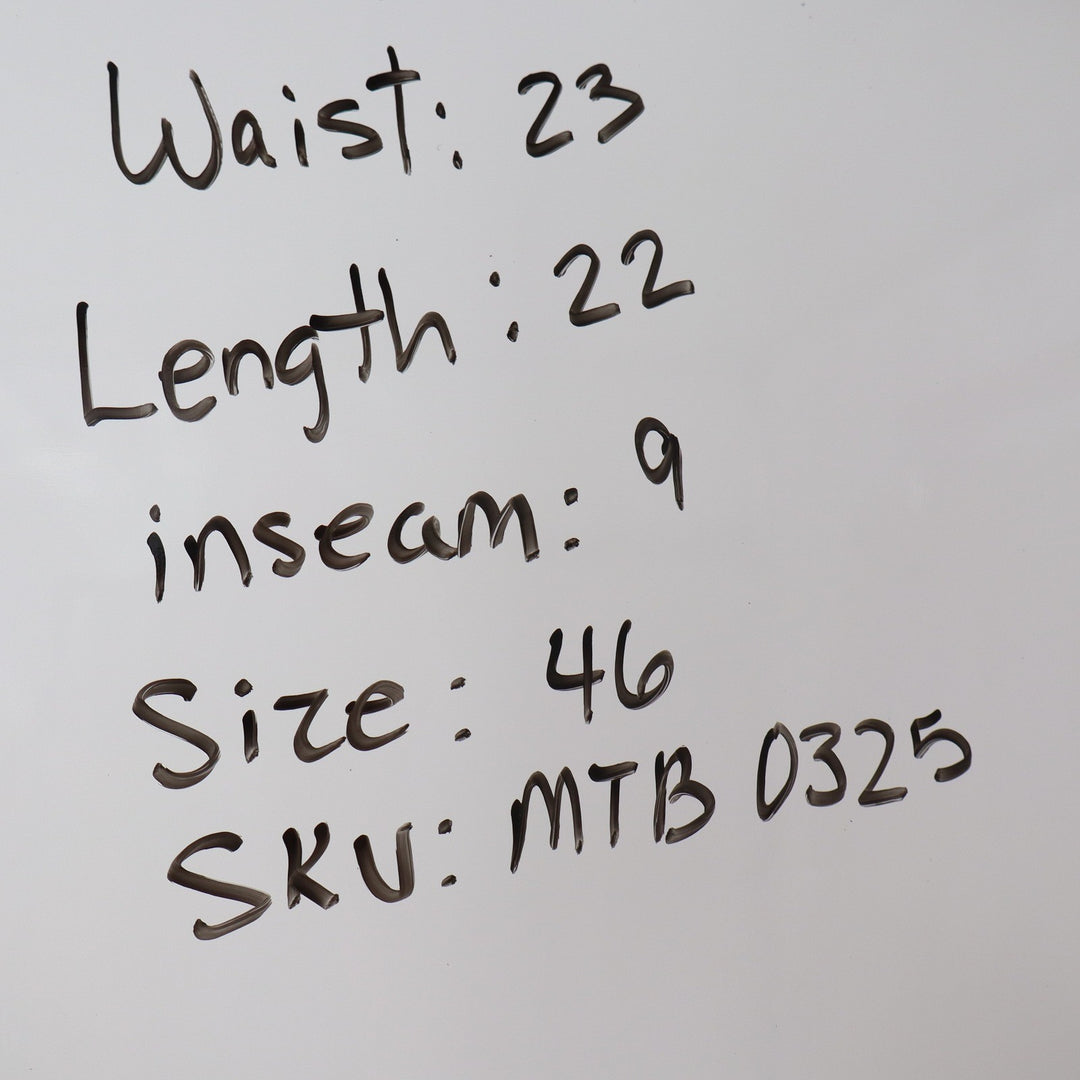 Waist: 23
Length: 22
inseam: 9
Size: 46
SKU: MTB 0325